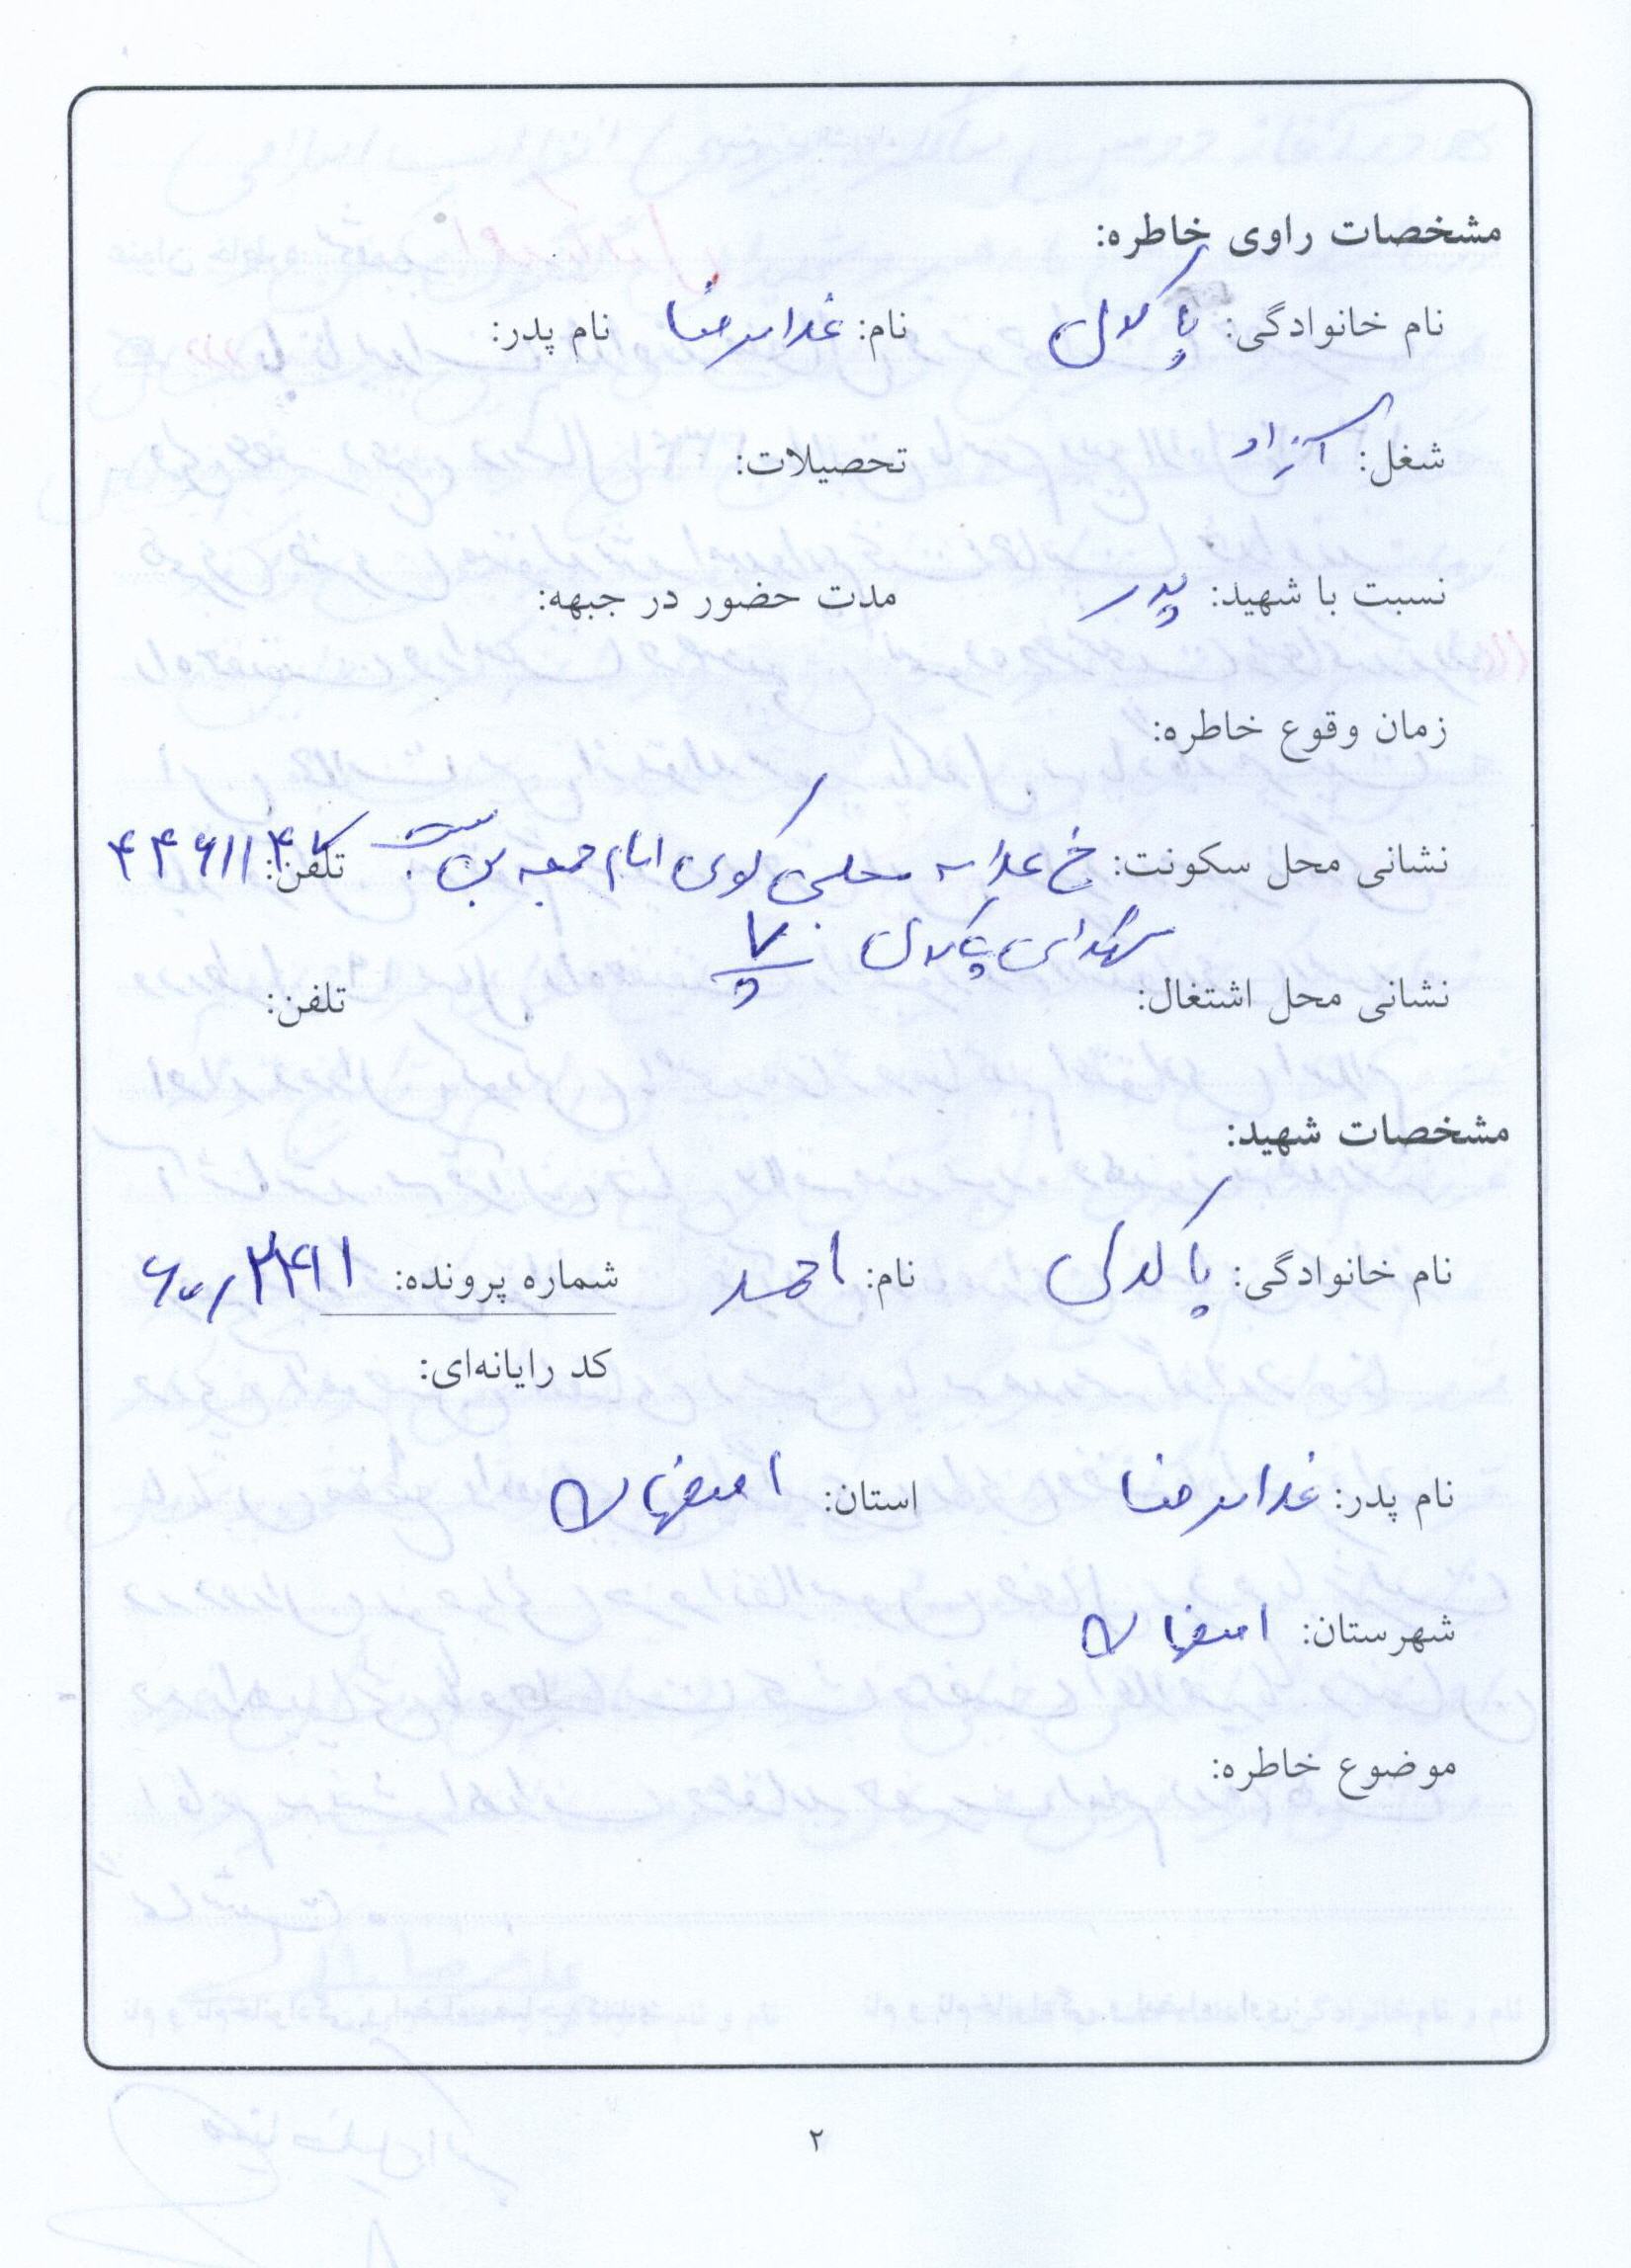 مشخصات راوی خاطره:
نام خانوادگی: پاکدل نام: غلامرضا نام پدر:
شغل: آزاد تحصیلات:
نسبت با شهید: پدر مدت حضور در جبهه:
زمان وقوع خاطره:
نشانی محل سکونت: خ علامه مجلسی کوی امام جمعه بن بست تلفن: ۴۴۶۱۱۴۷
شهدای پاکدل پ ۷
نشانی محل اشتغال: تلفن:
مشخصات شهید:
نام خانوادگی: پاکدل نام: احمد شماره پرونده:
کد رایانه‌ای:
نام پدر: غلامرضا استان: اصفهان
شهرستان: اصفهان
موضوع خاطره:
۲